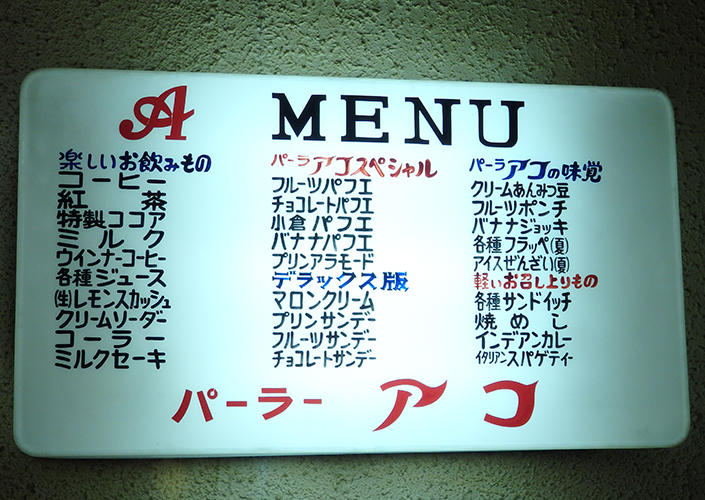 A MENU
楽しいお飲みもの
コーヒー
紅茶
特製ココア
ミルク
ウインナーコーヒー
各種ジュース
(生)レモンスカッシュ
クリームソーダー
コーラー
ミルクセーキ
パーラアコスペシャル
フルーツパフエ
チョコレートパフエ
小倉パフエ
バナナパフエ
プリンアラモード
デラックス版
マロンクリーム
プリンサンデー
フルーツサンデー
チョコレートサンデー
パーラアコの味覚
クリームあんみつ豆
フルーツポンチ
バナナジョッキ
各種フラッペ(夏)
アイスぜんざい(夏)
軽いお召し上りもの
各種サンドイッチ
焼めし
インデアンカレー
イタリアンスパゲティー
パーラー アコ